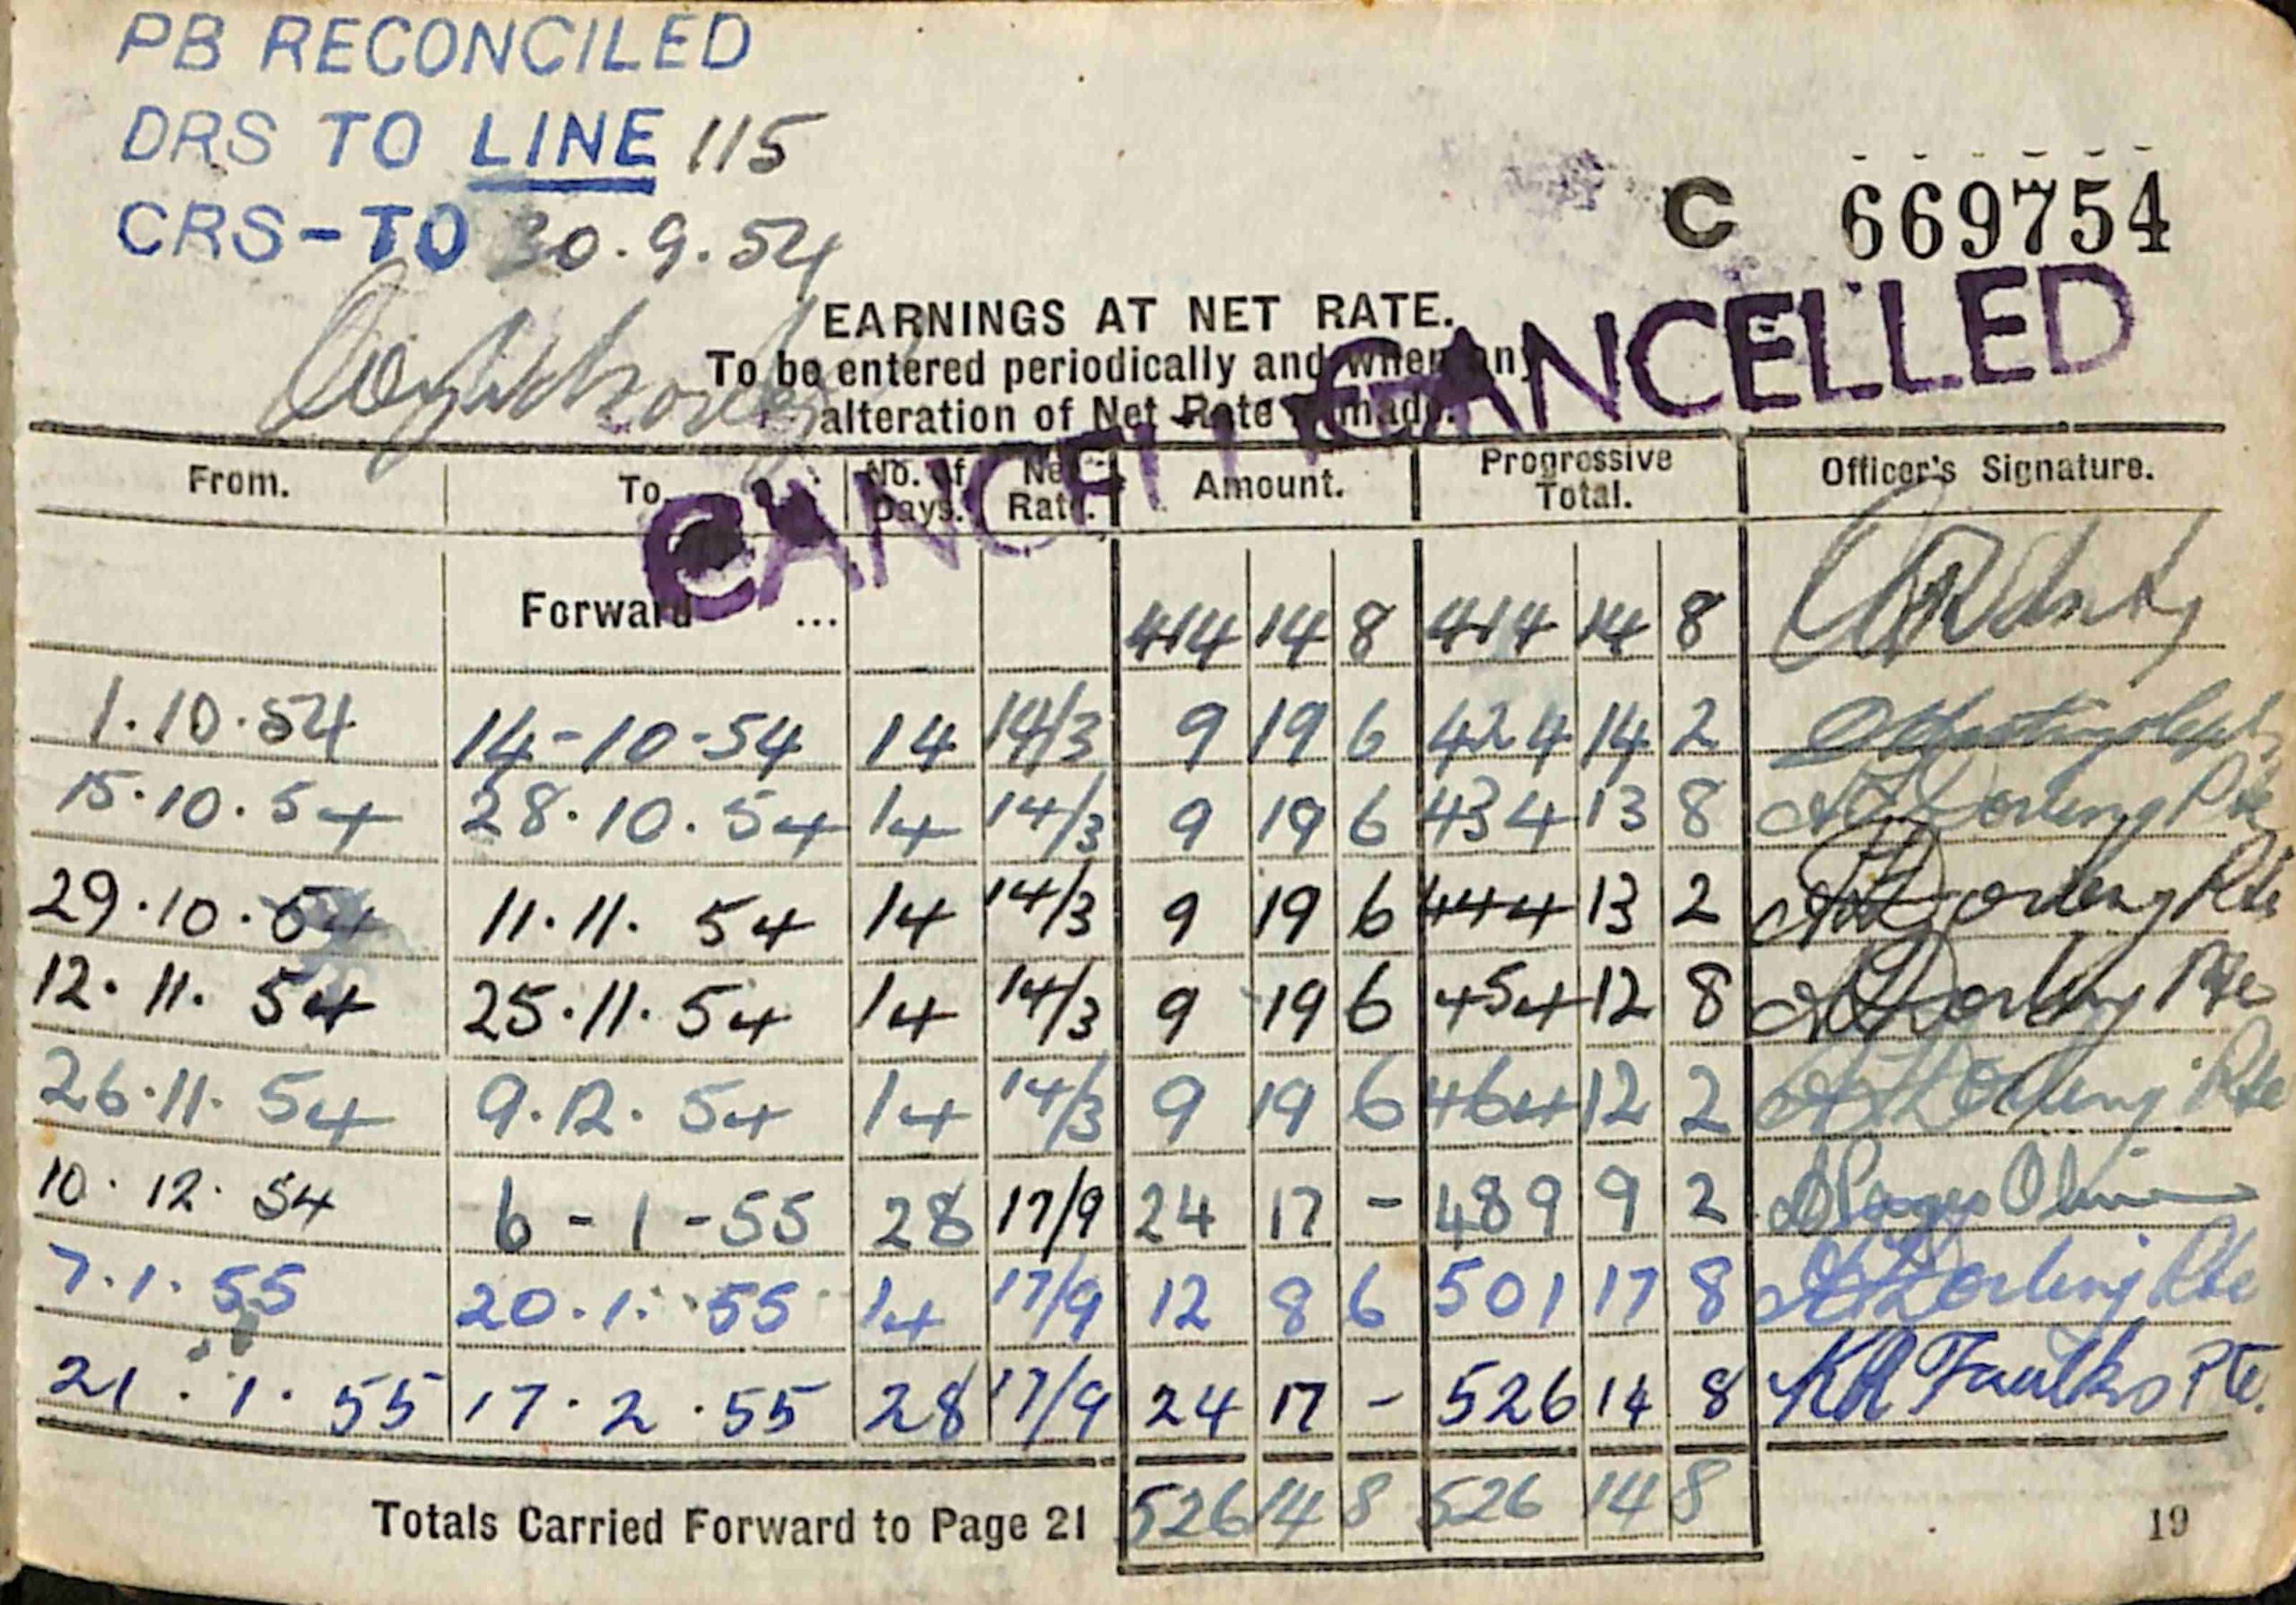 PB RECONCILED
DRS TO LINE 115
CRS-TO 30.9.54
C 669754
CANCELLED
CANCELLED
EARNINGS AT NET RATE.
To be entered periodically and when any
alteration of Net Rate is made.
From. To. No. of Days. Net Rate. Amount. Progressive Total. Officer's Signature.
Forward ... 414 14 8 414 14 8
1.10.54 14-10-54 14 14/3 9 19 6 424 14 2
15.10.54 28.10.54 14 14/3 9 19 6 434 13 8 Dorling Pte
29.10.54 11.11.54 14 14/3 9 19 6 444 13 2 Dorling Pte
12.11.54 25.11.54 14 14/3 9 19 6 454 12 8 Dorling Pte
26.11.54 9.12.54 14 14/3 9 19 6 464 12 2 Dorling Pte
10.12.54 6-1-55 28 17/9 24 17 - 489 9 2
7.1.55 20.1.55 14 17/9 12 8 6 501 17 8 Dorling Pte
21.1.55 17.2.55 28 17/9 24 17 - 526 14 8 Faulks Pte.
Totals Carried Forward to Page 21 526 14 8 526 14 8
19